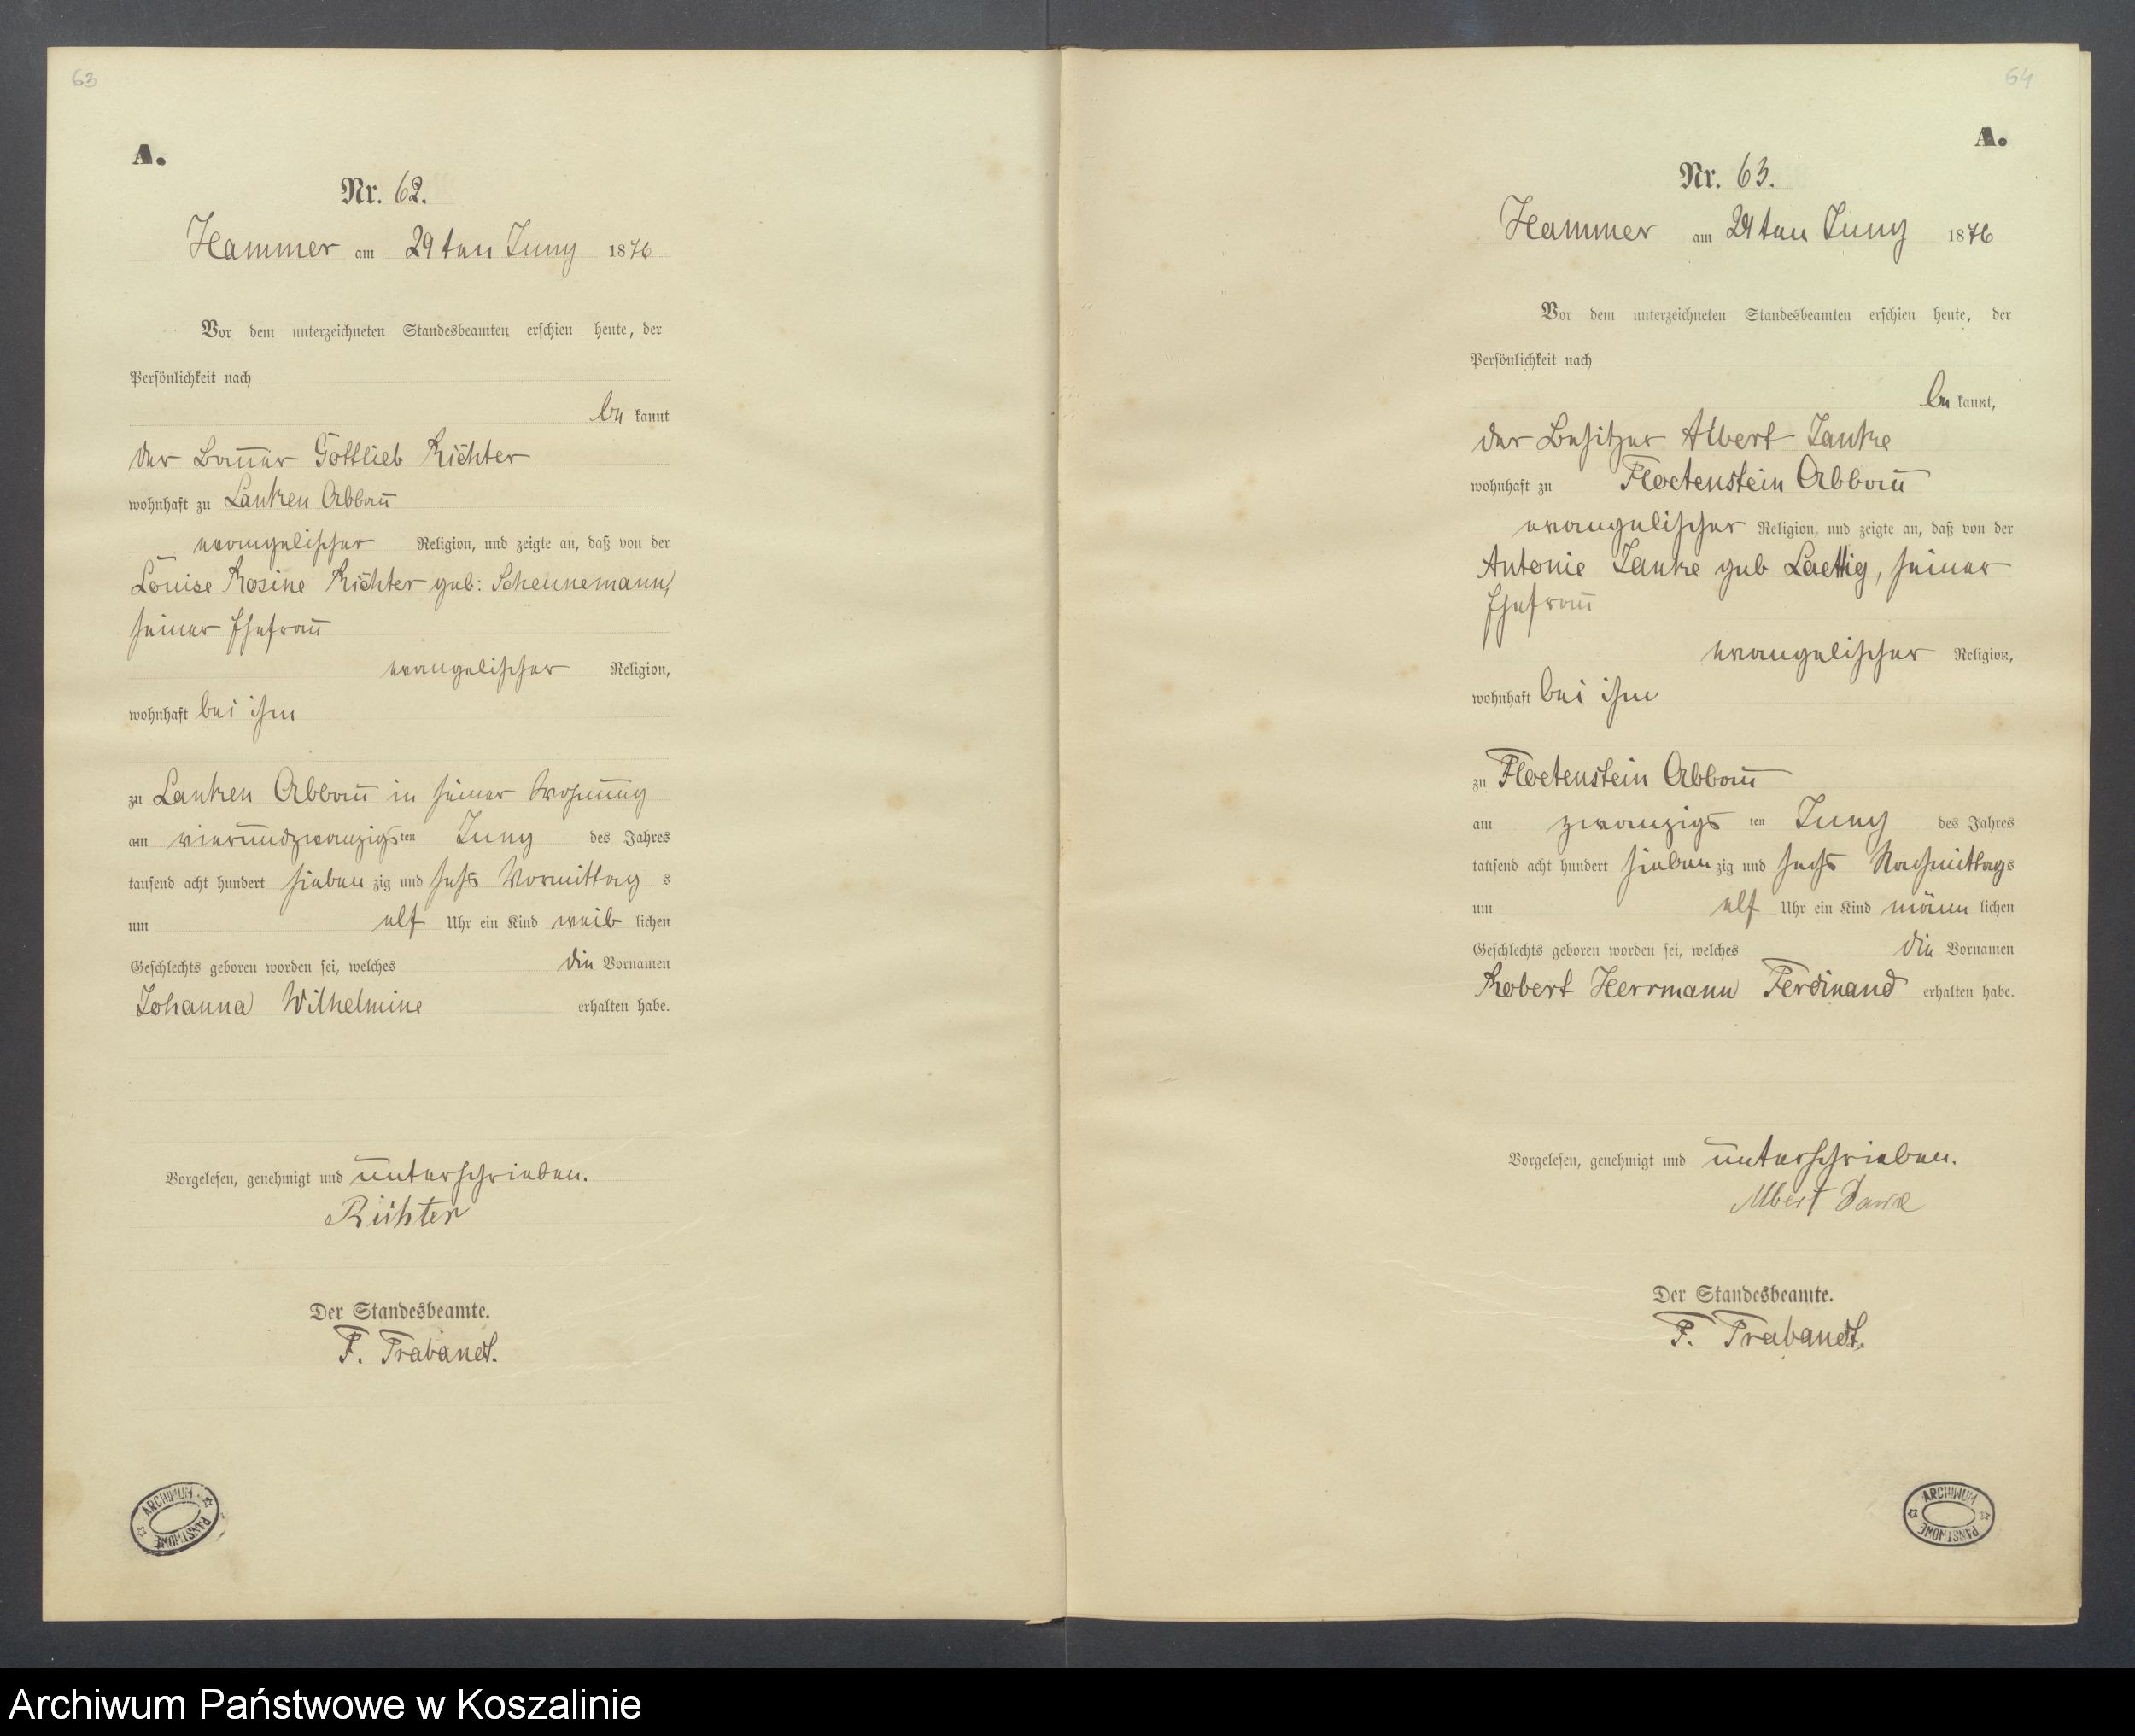 63
A.
Nr. 62.
Hammer am 29ten Juny 1876
Vor dem unterzeichneten Standesbeamten erschien heute, der
Persönlichkeit nach
be kannt
der Bauer Gottlieb Richter
wohnhaft zu Lanken Abbau
evangelischer Religion, und zeigte an, daß von der
Louise Rosine Richter geb: Scheunemann,
seiner Ehefrau
evangelischer Religion,
wohnhaft bei ihm
zu Lanken Abbau in seiner Wohnung
am vierundzwanzigs ten Juny des Jahres
tausend acht hundert sieben zig und sechs Vormittag s
um elf Uhr ein Kind weib lichen
Geschlechts geboren worden sei, welches die Vornamen
Johanna Wilhelmine erhalten habe.
Vorgelesen, genehmigt und unterschrieben.
Richter
Der Standesbeamte.
F. Trabandt.
ARCHIWUM PAŃSTWOWE
64
A.
Nr. 63.
Hammer am 29ten Juny 1876
Vor dem unterzeichneten Standesbeamten erschien heute, der
Persönlichkeit nach
be kannt,
der Besitzer Albert Janke
wohnhaft zu Floetenstein Abbau
evangelischer Religion, und zeigte an, daß von der
Antonie Janke geb Laettig, seiner
Ehefrau
evangelischer Religion,
wohnhaft bei ihm
zu Floetenstein Abbau
am zwanzigs ten Juny des Jahres
tausend acht hundert sieben zig und sechs Nachmittag s
um elf Uhr ein Kind männ lichen
Geschlechts geboren worden sei, welches die Vornamen
Robert Herrmann Ferdinand erhalten habe.
Vorgelesen, genehmigt und unterschrieben.
Albert
Der Standesbeamte.
F. Trabandt.
ARCHIWUM PAŃSTWOWE
Archiwum Państwowe w Koszalinie